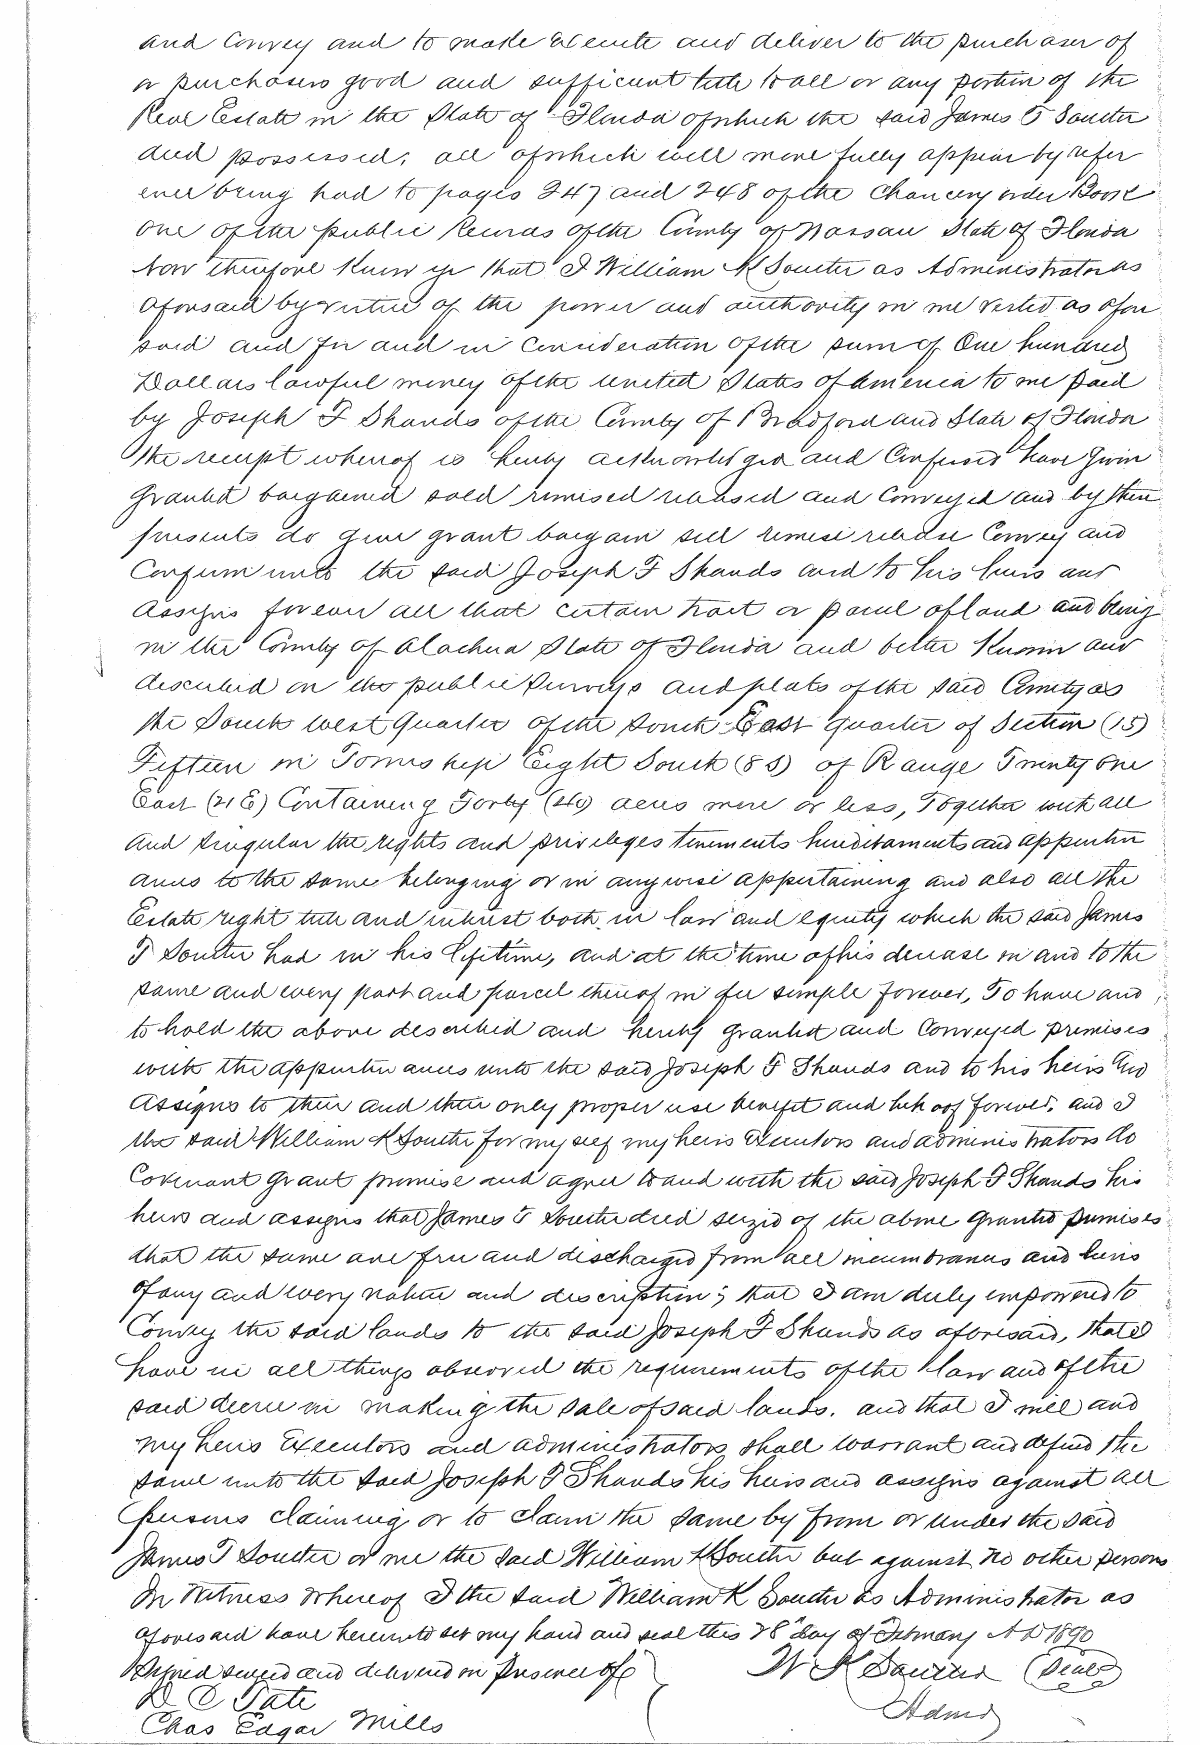 and Convey and to make Execute and deliver to the purchaser of
or purchasers good and sufficient title to all or any portion of the
Real Estate in the State of Florida of which the said James T Soutter
died possessed; all of which will more fully appear by refer
ence being had to pages 247 and 248 of the Chancery order Book
one of the public Records of the County of Nassau State of Florida
Now therefore Know ye that I William K Soutter as Administrator as
aforesaid by virtue of the power and authority in me vested as afore
said and for and in consideration of the sum of One hundred
Dollars lawful money of the united States of America to me paid
by Joseph F Shands of the County of Bradford and State of Florida
the receipt whereof is hereby acknowledged and Confessed have Given
Granted bargained sold remised released and Conveyed and by these
presents do give grant bargain sell remise release Convey and
Confirm unto the said Joseph F Shands and to his heirs and
Assigns forever all that certain tract or parcel of land and being
in the County of Alachua State of Florida and better Known and
described on the public Surveys and plats of the said County as
the South West Quarter of the South East quarter of Section (15)
Fifteen in Township Eight South (8S) of Range Twenty one
East (21E) Containing Forty (40) acres more or less, Together with all
and singular the rights and privileges tenements hereditaments and appurten
ances to the same belonging or in anywise appertaining and also all the
Estate right title and interest both in law and equity which the said James
T Soutter had in his lifetime, and at the time of his decease in and to the
same and every part and parcel thereof in fee simple forever, To have and
to hold the above described and hereby granted and Conveyed premises
with the appurtenances unto the said Joseph F Shands and to his heirs and
Assigns to their and their only proper use benefit and behoof forever, and I
the said William K Soutter for myself my heirs Executors and administrators do
Covenant grant promise and agree to and with the said Joseph F Shands his
heirs and assigns that James T Soutter died seized of the above granted premises
that the same are free and discharged from all incumbrances and liens
of any and every nature and description; that I am duly empowered to
Convey the said lands to the said Joseph F Shands as aforesaid, that I
have in all things observed the requirements of the law and of the
said decree in making the sale of said lands. and that I will and
my heirs Executors and administrators shall warrant and defend the
same unto the said Joseph F Shands his heirs and assigns against all
persons claiming or to claim the same by from or under the said
James T Soutter or me the said William K Soutter but against no other persons
In Witness whereof I the said William K Soutter as Administrator as
aforesaid have hereunto set my hand and seal this 28" day of February A D 1890
Signed sealed and delivered in Presence of W K Soutter (Seal)
D C Tate Admr
Chas Edgar Mills